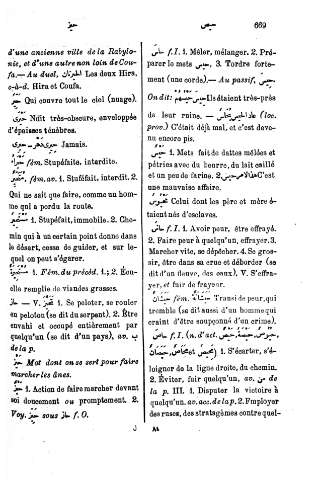 حيز حيص 669
d'une ancienne ville de la Babylo-
nie, et d'une autre non loin de Cou-
fa.— Au duel, الحيرتان Les deux Hira,
c.-à-d. Hira et Coufa.
Qui couvre tout le ciel (nuage).
Nuit très-obscure, enveloppée
d'épaisses ténèbres.
Jamais.
fém. Stupéfaite, interdite.
fém. av. 1. Stupéfait, interdit. 2.
Qui ne sait que faire, comme un hom-
me qui a perdu la route.
1. Stupéfait, immobile. 2. Che-
min qui à un certain point donne dans
le désert, cesse de guider, et sur le-
quel on peut s'égarer.
1. Fém. du précéd. 1.; 2. Écu-
elle remplie de viandes grasses.
— V. 1. Se peloter, se rouler
en peloton (se dit du serpent). 2. Être
envahi et occupé entièrement par
quelqu'un (se dit un pays), av. ب
de la p.
Mot dont on se sert pour faire
marcher les ânes.
1. Action de faire marcher devant
soi doucement ou promptement. 2.
Voy. حاز sous f. O.
f. I. 1. Mêler, mélanger. 2. Pré-
parer le mets حيس. 3. Tordre forte-
ment (une corde).— Au passif,
On dit: Ils étaient très-près
de leur ruine. — (loc.
prov.) C'était déjà mal, et c'est deve-
nu encore pis.
1. Mets fait de dattes mêlées et
pétries avec du beurre, du lait caillé
et un peu de farine. 2. C'est
une mauvaise affaire.
Celui dont les père et mère é-
taient nés d'esclaves.
f. I. 1. Avoir peur, être effrayé.
2. Faire peur à quelqu'un, effrayer. 3.
Marcher vite, se dépêcher. 4. Se gros-
sir, être dans sa crue et déborder (se
dit d'un fleuve, des eaux). V. S'effra-
yer, et fuir de frayeur.
fém. Transi de peur, qui
tremble (se dit aussi d'un homme qui
craint d'être soupçonné d'un crime).
f. I. (n. d'act.
1. S'écarter, s'é-
loigner de la ligne droite, du chemin.
2. Éviter, fuir quelqu'un, av. من de
la p. III. 1. Disputer la victoire à
quelqu'un, av. acc. de la p. 2. Employer
des ruses, des stratagèmes contre quel-